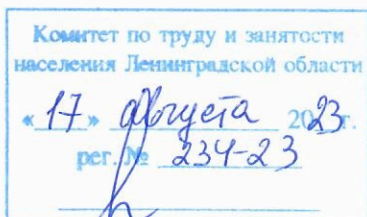 Комитет по труду и занятости
населения Ленинградской области
«17» августа 2023 г.
рег. № 234-23